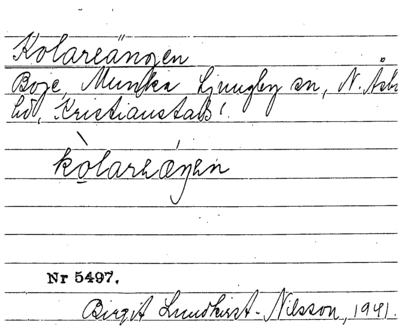 Kolareängen
Boje, Munka Ljungby sn, N. Åsbo
hd, Kristianstads l.
kòlareáŋen
Nr 5497.
Birgit Lundkvist-Nilsson, 1941.